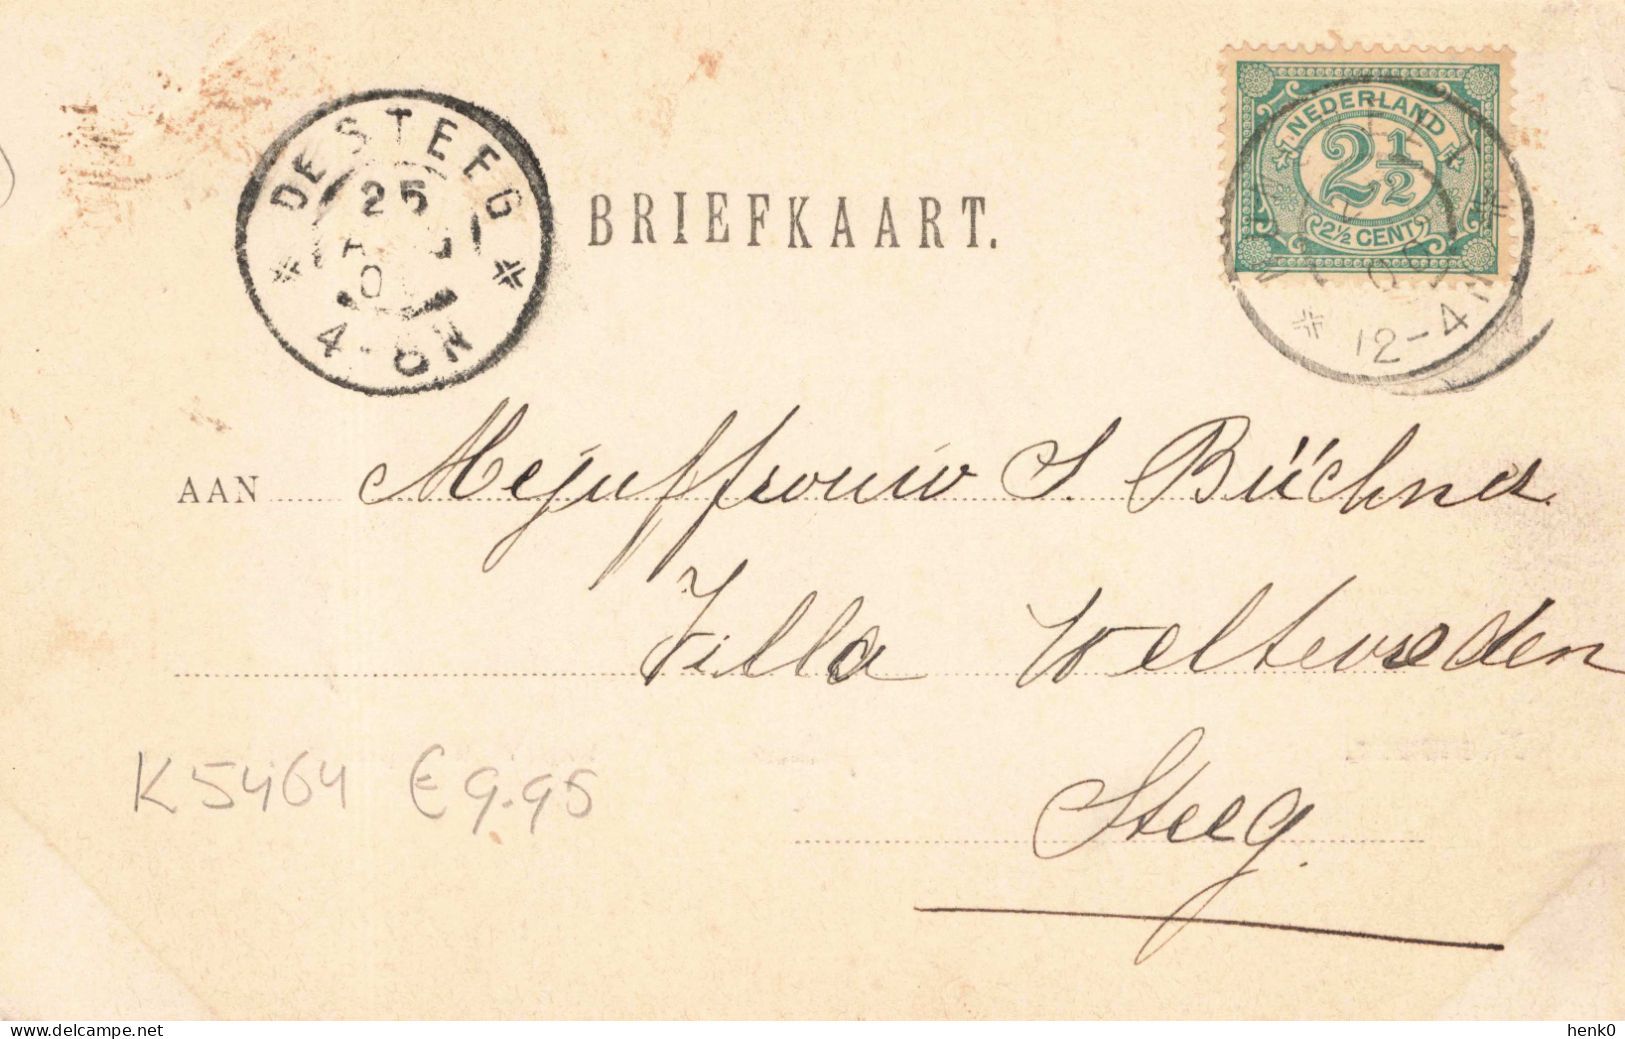 DE STEEG
25
4-8N
BRIEFKAART.
NEDERLAND
2½
2½ CENT
12-4N
AAN Mejuffrouw S. Büchner.
Villa Weltevreden
Steeg.
K5464 € 9.95
www.delcampe.net
henk0